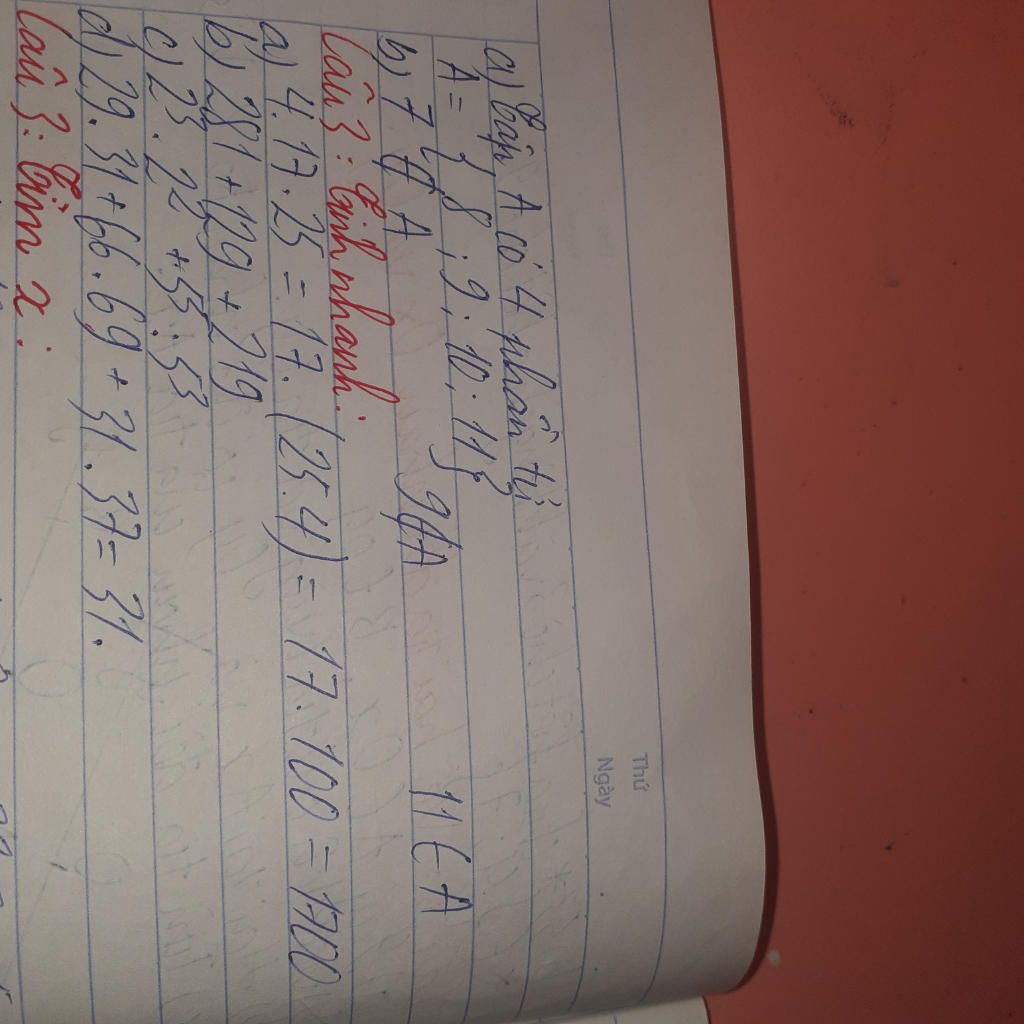 Thứ
Ngày
a) Tập A có 4 phần tử
A = { 8 ; 9 ; 10 ; 11 }
b) 7 ∉ A 9 ∉ A 11 ∈ A
Câu 3 : Tính nhanh:
a) 4.17.25 = 17. (25.4) = 17.100 = 1700
b) 281 + 129 + 219
c) 23.22 + 33.33
d) 29.31 + 66.69 + 31.37 = 31.
Câu 3: Tìm x: